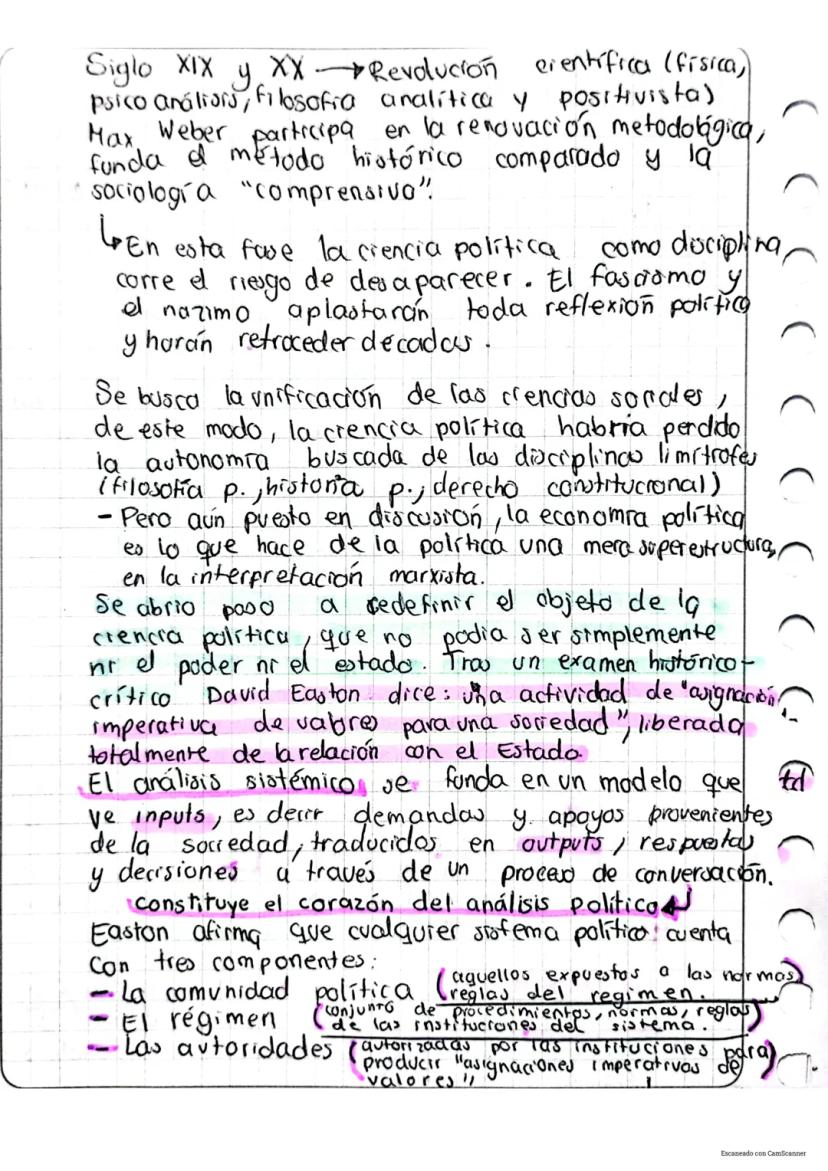 Siglo XIX y XX → Revolución científica (física,
psicoanálisis, filosofía analítica y positivista)
Max Weber participa en la renovación metodológica,
funda el método histórico comparado y la
sociología "comprensiva".
↳ En esta fase la ciencia política como disciplina
corre el riesgo de desaparecer. El fascismo y
el nazimo aplastarán toda reflexión política
y harán retroceder décadas.
Se busca la unificación de las ciencias sociales,
de este modo, la ciencia política habría perdido
la autonomía buscada de las disciplinas limítrofes
(filosofía p., historia p., derecho constitucional)
- Pero aún puesto en discusión, la economía política
es lo que hace de la política una mera superestructura,
en la interpretación marxista.
Se abrio paso a redefinir el objeto de la
ciencia política, que no podía ser simplemente
ni el poder ni el estado. Tras un examen histórico-
crítico David Easton dice: una actividad de "asignación
imperativa de valores para una sociedad", liberada
totalmente de la relación con el Estado.
El análisis sistémico se funda en un modelo que
ve inputs, es decir demandas y apoyos provenientes
de la sociedad, traducidos en outputs, respuestas
y decisiones a través de un proceso de conversación.
constituye el corazón del análisis político ↵
Easton afirma que cualquier sistema político cuenta
con tres componentes:
- La comunidad política (aquellos expuestos a las normas)
reglas del regimen.
- El régimen (conjunto de procedimientos, normas, reglas)
de las instituciones del sistema.
- Las autoridades (autorizadas por las instituciones para)
producir "asignaciones imperativas de
valores"
Escaneado con CamScanner